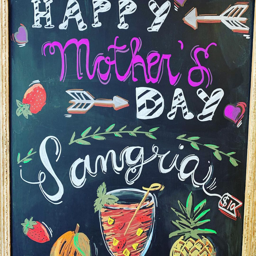 HAPPY
Mother's
DAY
Sangria
$10